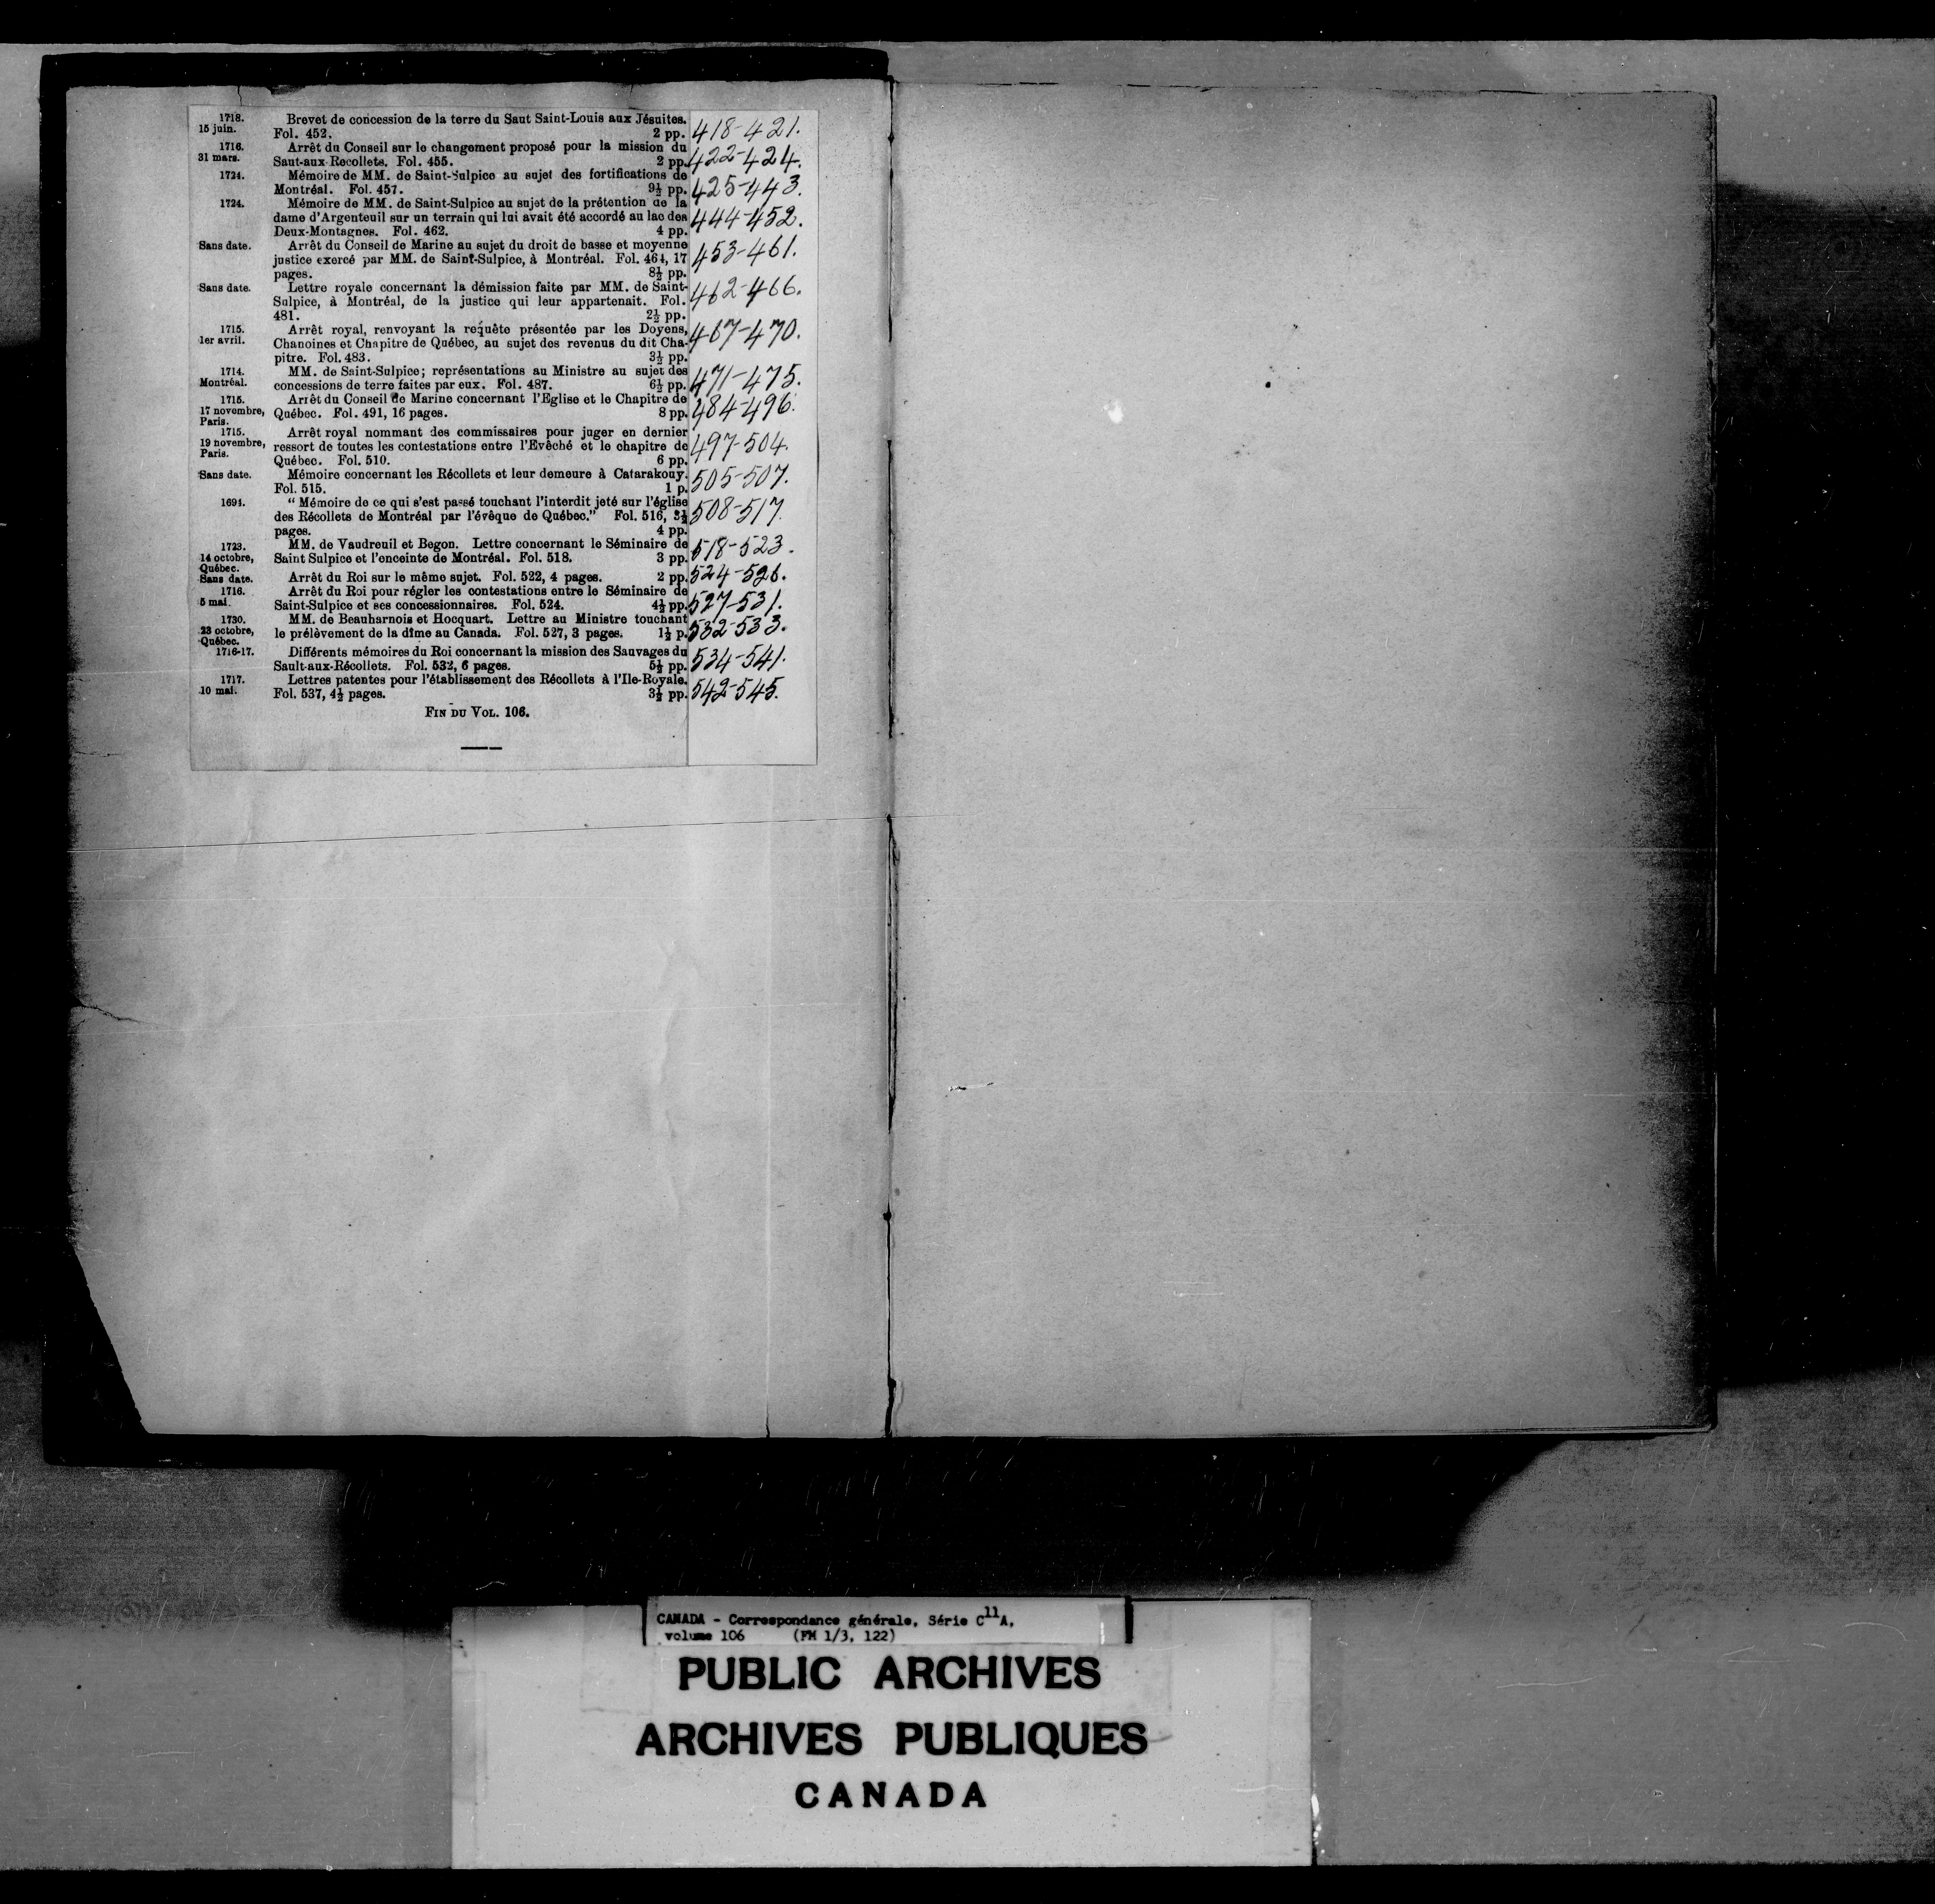 1718. Brevet de concession de la terre du Saut Saint-Louis aux Jésuites.
15 juin. Fol. 452. 2 pp. 418-421.
1716. Arrêt du Conseil sur le changement proposé pour la mission du
31 mars. Saut-aux-Recollets. Fol. 455. 2 pp. 422-424.
1724. Mémoire de MM. de Saint-Sulpice au sujet des fortifications de
Montréal. Fol. 457. 9½ pp. 425-443.
1724. Mémoire de MM. de Saint-Sulpice au sujet de la prétention de la
dame d'Argenteuil sur un terrain qui lui avait été accordé au lac des 444-452.
Deux-Montagnes. Fol. 462. 4 pp.
Sans date. Arrêt du Conseil de Marine au sujet du droit de basse et moyenne
justice exercé par MM. de Saint-Sulpice, à Montréal. Fol. 464, 17 453-461.
pages. 8½ pp.
Sans date. Lettre royale concernant la démission faite par MM. de Saint-
Sulpice, à Montréal, de la justice qui leur appartenait. Fol. 462-466.
481. 2½ pp.
1715. Arrêt royal, renvoyant la requête présentée par les Doyens,
1er avril. Chanoines et Chapitre de Québec, au sujet des revenus du dit Cha- 467-470.
pitre. Fol. 483. 3½ pp.
1714. MM. de Saint-Sulpice; représentations au Ministre au sujet des
Montréal. concessions de terre faites par eux. Fol. 487. 6½ pp. 471-475.
1715. Arrêt du Conseil de Marine concernant l'Eglise et le Chapitre de
17 novembre, Québec. Fol. 491, 16 pages. 8 pp. 484-496.
Paris.
1715. Arrêt royal nommant des commissaires pour juger en dernier
19 novembre, ressort de toutes les contestations entre l'Evêché et le chapitre de 497-504.
Paris. Québec. Fol. 510. 6 pp.
Sans date. Mémoire concernant les Récollets et leur demeure à Catarakouy.
Fol. 515. 1 p. 505-507.
1694. "Mémoire de ce qui s'est passé touchant l'interdit jeté sur l'église
des Récollets de Montréal par l'évêque de Québec." Fol. 516, 3½ 508-517
pages. 4 pp.
1723. MM. de Vaudreuil et Begon. Lettre concernant le Séminaire de
14 octobre, Saint Sulpice et l'enceinte de Montréal. Fol. 518. 3 pp. 518-523.
Québec.
Sans date. Arrêt du Roi sur le même sujet. Fol. 522, 4 pages. 2 pp. 524-526.
1716. Arrêt du Roi pour régler les contestations entre le Séminaire de
5 mai. Saint-Sulpice et ses concessionnaires. Fol. 524. 4½ pp. 527-531.
1730. MM. de Beauharnois et Hocquart. Lettre au Ministre touchant
23 octobre, le prélèvement de la dîme au Canada. Fol. 527, 3 pages. 1½ p. 532-533.
Québec.
1716-17. Différents mémoires du Roi concernant la mission des Sauvages du
Sault-aux-Récollets. Fol. 532, 6 pages. 5½ pp. 534-541.
1717. Lettres patentes pour l'établissement des Récollets à l'Ile-Royale.
10 mai. Fol. 537, 4½ pages. 3½ pp. 542-545.
FIN DU VOL. 106.
CANADA - Correspondance générale, Série C11A,
volume 106 (FM 1/3, 122)
PUBLIC ARCHIVES
ARCHIVES PUBLIQUES
CANADA